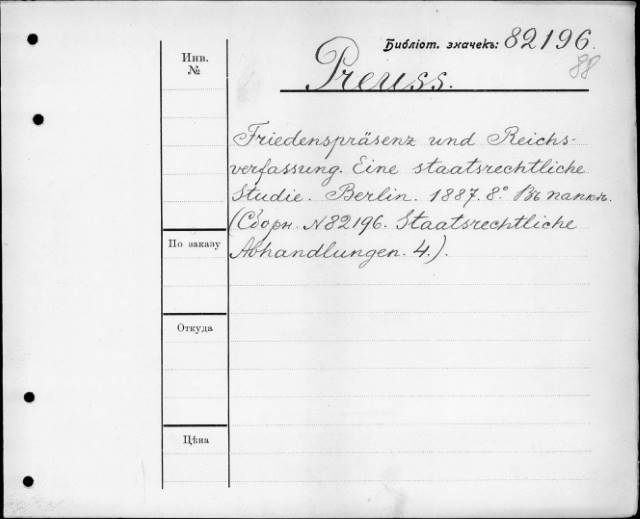 Библіот. значекъ: 82196.
88
Инв.
№
Preuss.
Friedenspräsenz und Reichs-
verfassung. Eine staatsrechtliche
Studie. Berlin. 1887. 8.° Въ папкѣ.
(Сборн. №82196. Staatsrechtliche
По заказу
Abhandlungen. 4.).
Откуда
Цѣна